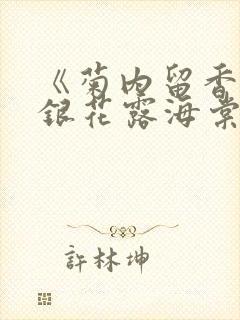 《菊内留香
銀花露海棠
許林坤